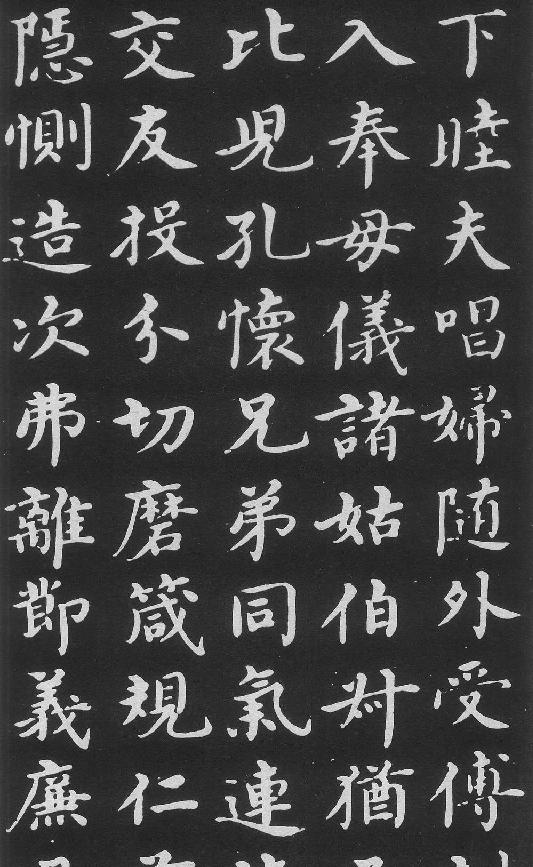 下睦夫唱婦随外受傅
入奉母儀諸姑伯叔猶
比兒孔懷兄弟同氣連
交友投分切磨箴規仁
隱惻造次弗離節義廉